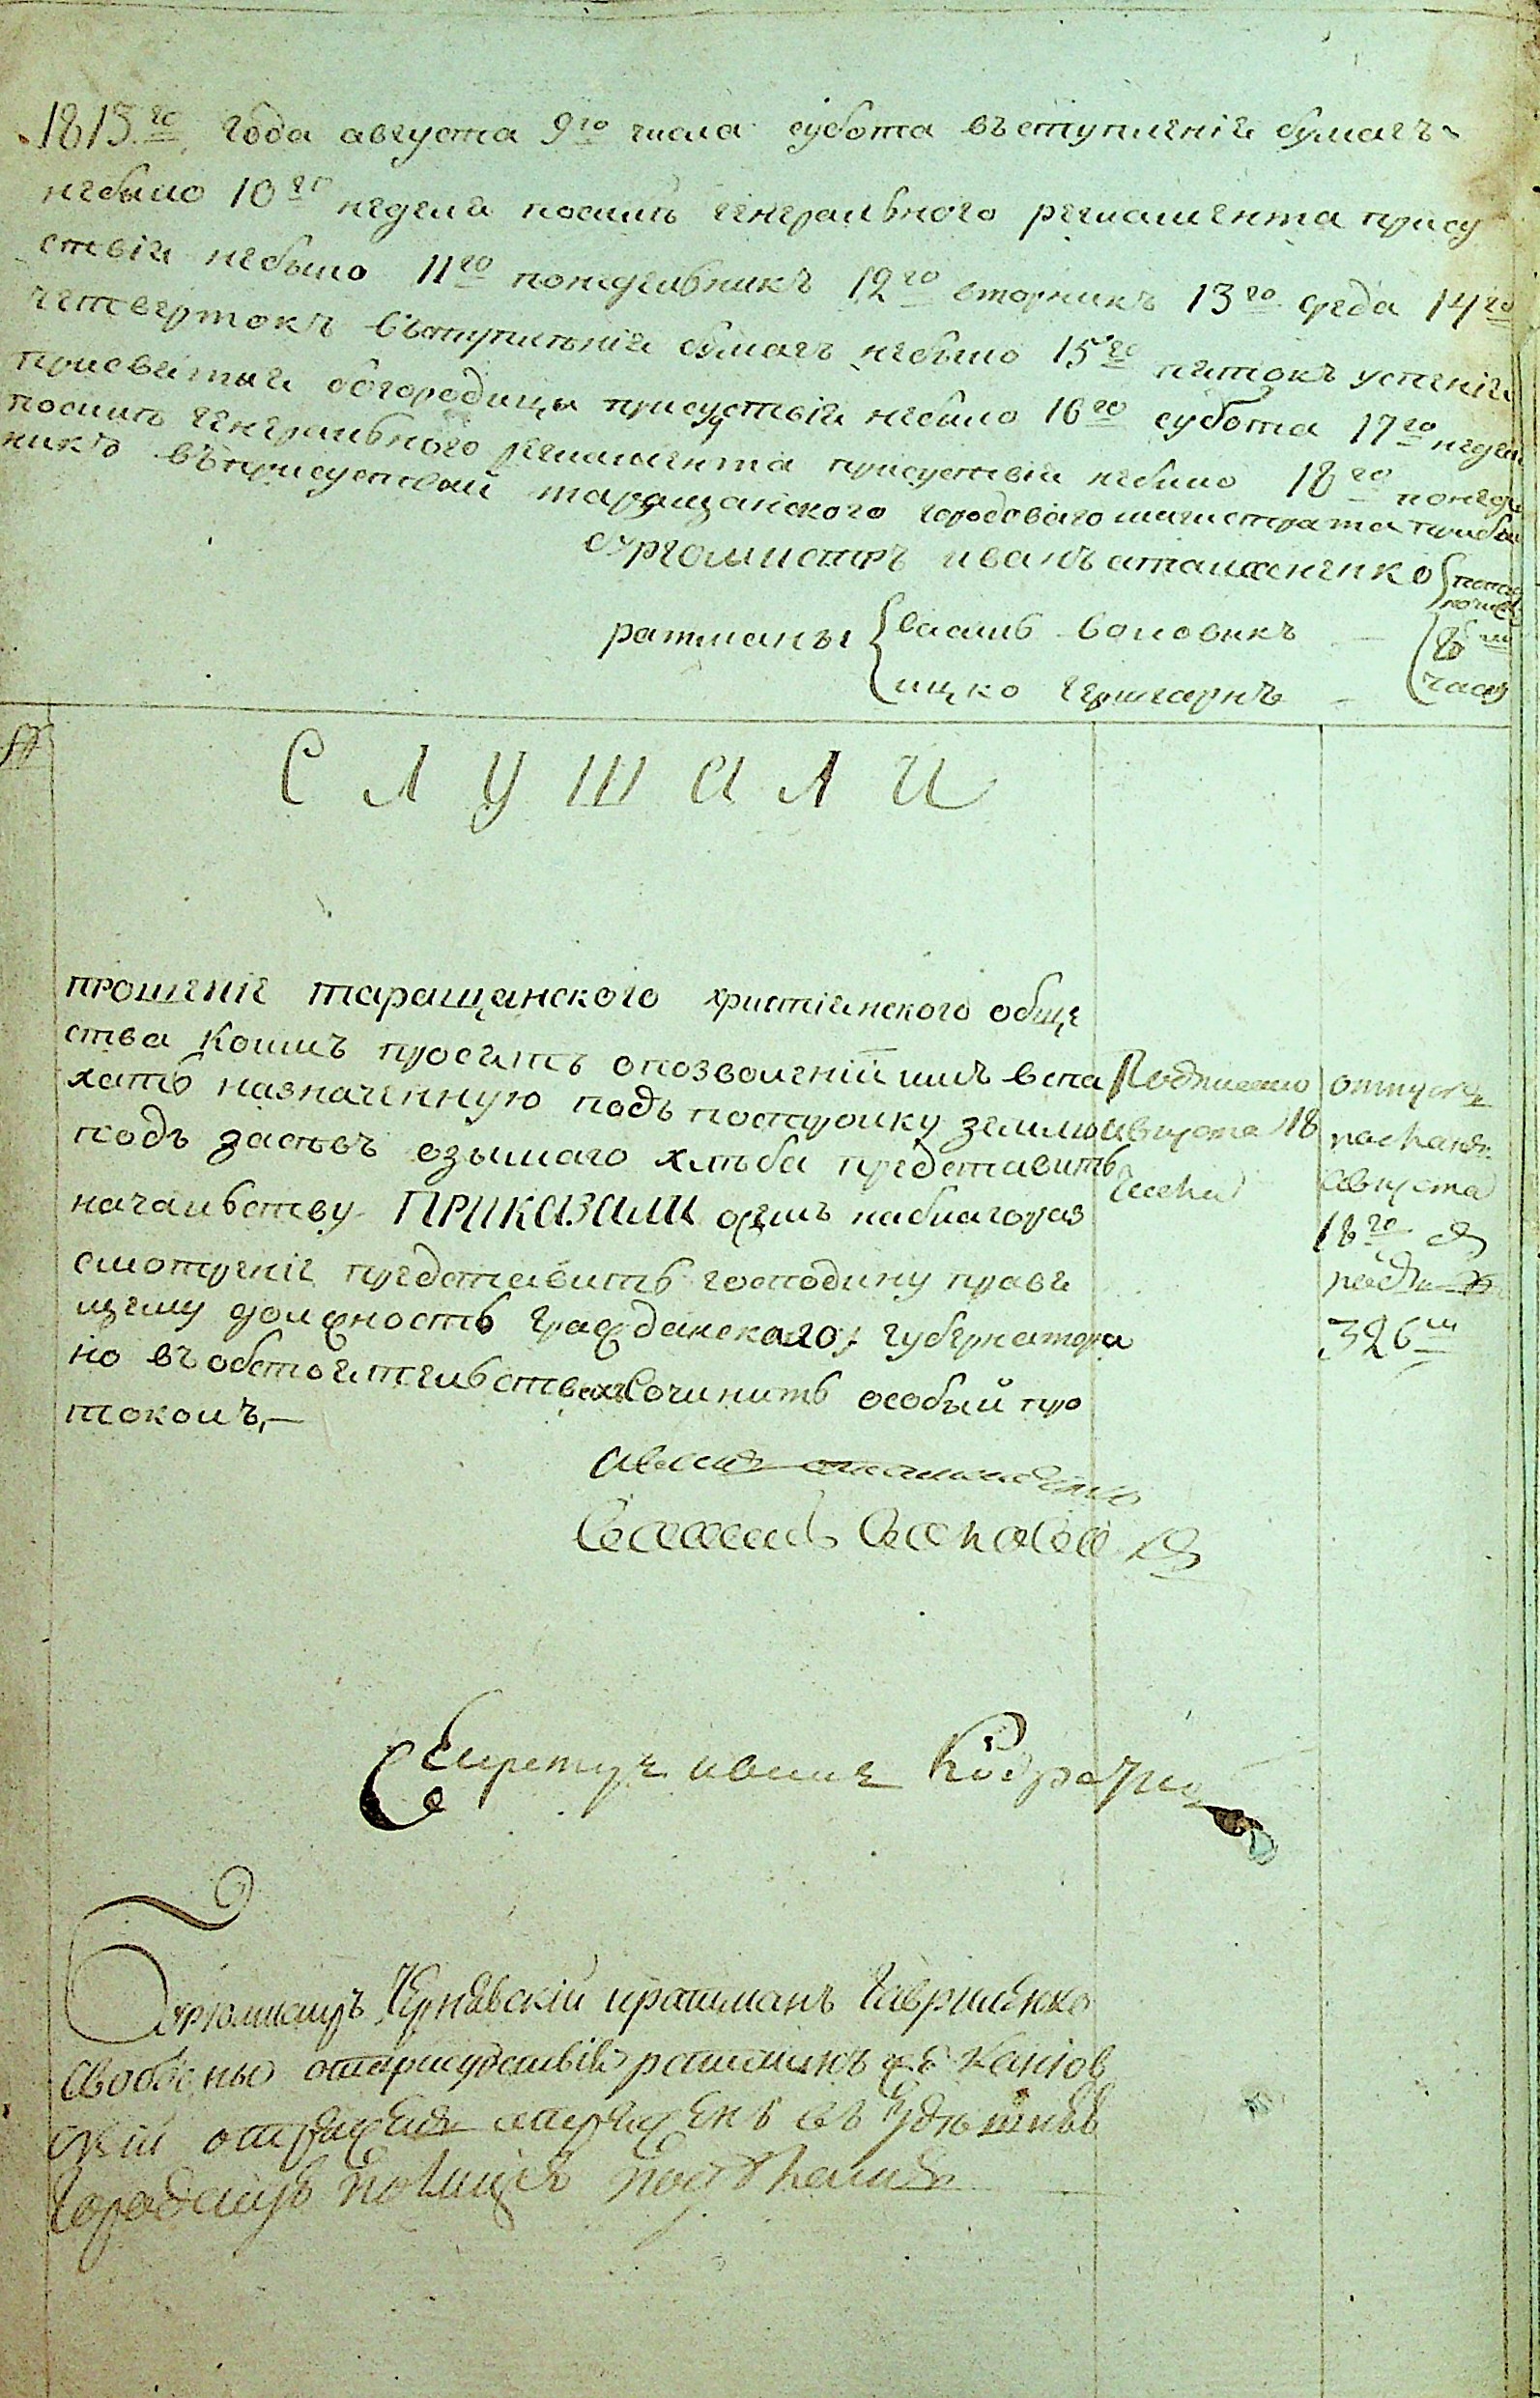 1813.го года августа 9го числа субота въступлѣній бумагъ
небыло 10го неделя посилѣ генерального регламента прису
ствія небыло 11го понедельникъ 12го вторникъ 13го среда 14го
четвертокъ въступленій бумагъ небыло 15го петокъ успенія
присвятыя богородицы присуствія небыло 16го субота 17го неделя
посилѣ генеральнаго регламента присуствія небыло 18го понедел
никъ въприсуствій таращанского городового магистрата прибыли
бургомистръ иванъ аташенко
ратманы василь воловикъ 8ми
ицко часу
СЛУШАЛИ
прошеніе таращанского христіянского обще
ства коимъ просятъ опозволеній имъ вспа
хать назначенную подъ постройку землю
подъ засевъ озымаго хлѣба представить
начальству ПРИКАЗАЛИ осемъ наблагораз
смотреніе представить господину правя
щему должность гражданскаго губернатора
но въобстоятельствахъ сочинить особый про
токолъ,—
Подписано
августа 18
числа
отпускъ
августа
18го
подъ №
326м
Секретарь иванъ
Бургомистръ Чернявскій иратманъ Гавриленко
свободны отприсудствія ратманъ же Каніов
скій
городскую полицію подъ